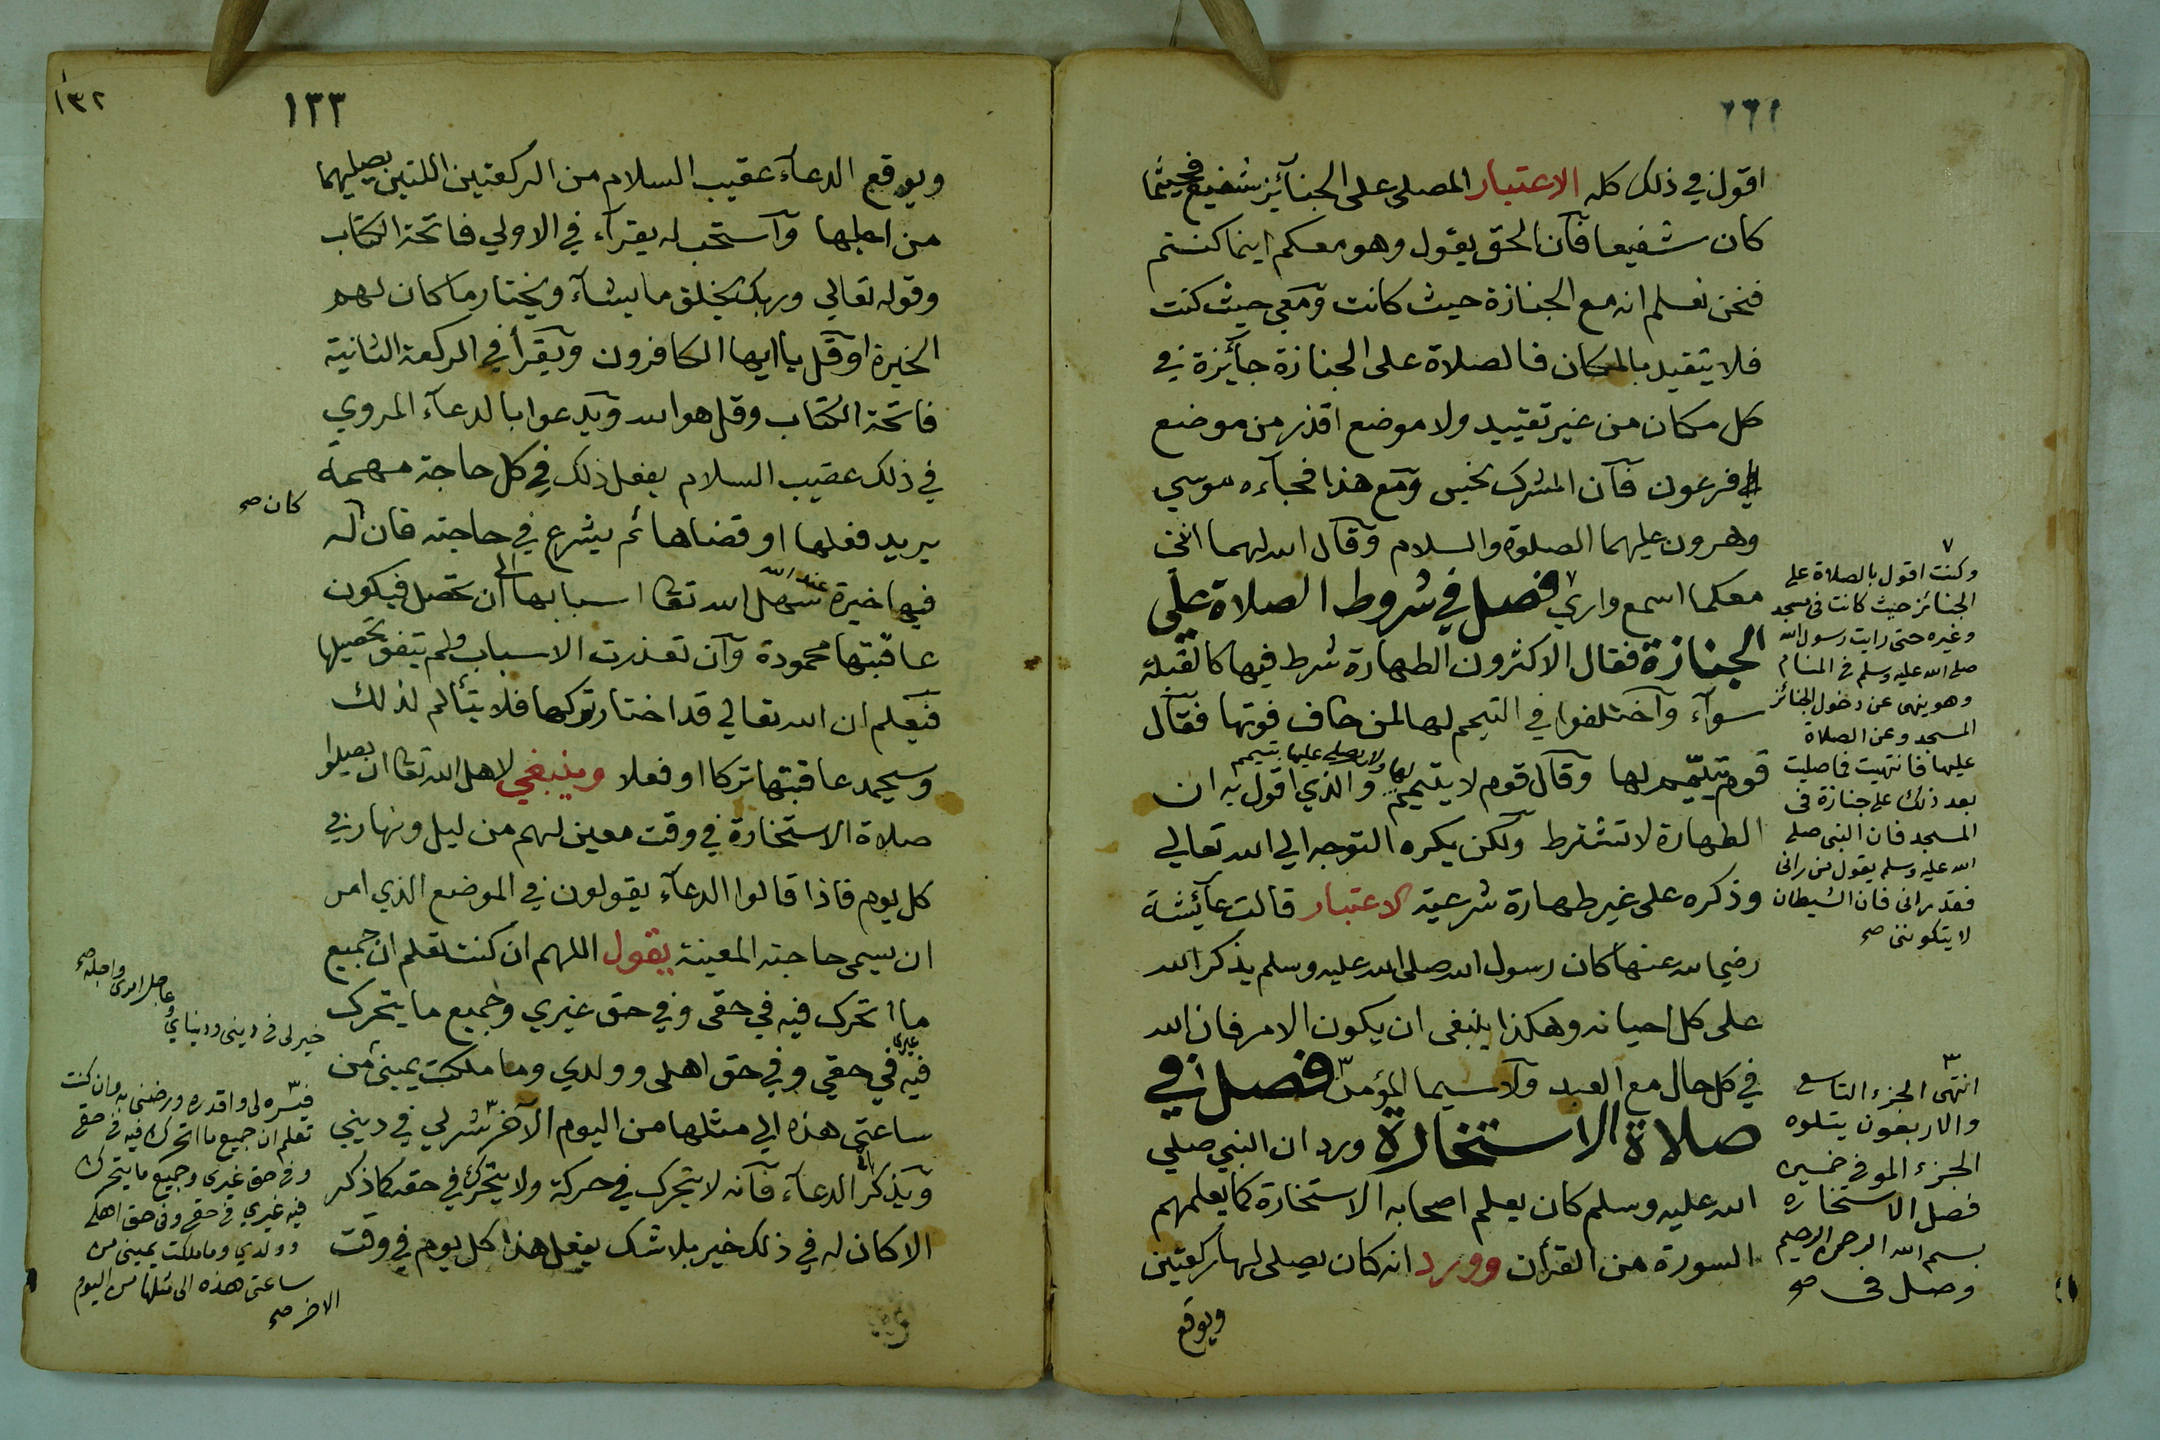 اقول في ذلك كله الاعتبار المصلي على الجنائز شفيع فحيثما
كان شفيعا فان الحق يقول وهو معكم اينما كنتم
فنحن نعلم انه مع الجنازة حيث كانت ومعي حيث كنت
فلا يتقيد بالمكان فالصلاة على الجنازة جائزة في
كل مكان من غير تقييد ولا موضع اقذر من موضع
فرعون فان المشرك نجس ومع هذا فجاءه موسي
وهرون عليهما الصلوة والسلام وقال الله لهما انني
معكما اسمع واري فصل في شروط الصلاة على
الجنازة فقال الاكثرون الطهارة شرط فيها كالقبلة
سواء واختلفوا في التيمم لها لمن خاف فوتها فقال
قوم يتيمم لها وقال قوم لا يتيمم لها ولا يصلي عليها بتيمم والذي اقول به ان
الطهارة لا تشترط ولكن يكره التوجه الي الله تعالي
وذكره على غير طهارة شرعية الاعتبار قالت عائشة
رضي الله عنها كان رسول الله صلى الله عليه وسلم يذكر الله
على كل احيانه وهكذا ينبغي ان يكون الامر فان الله
في كل حال مع العبد ولا سيما المؤمن فصل في
صلاة الاستخارة ورد ان النبي صلي
الله عليه وسلم كان يعلم اصحابه الاستخارة كما يعلمهم
السورة من القرآن وورد انه كان يصلي لها ركعتين
ويوقع
وكنت اقول بالصلاة على
الجنائز حيث كانت في مسجد
وغيره حتى رايت رسول الله
صلى الله عليه وسلم في المنام
وهو ينهى عن دخول الجنائز
المسجد وعن الصلاة
عليها فانتهيت فما صليت
بعد ذلك على جنازة في
المسجد فان النبي صلى
الله عليه وسلم يقول من رانى
فقد رانى فان الشيطان
لا يتكوننى صح
انتهى الجزء التاسع
والاربعون يتلوه
الجزء الموفى خمسين
فصل الاستخارة
بسم الله الرحمن الرحيم
وصل فى صح
١٣٢
١٣٣
ويوقع الدعاء عقيب السلام من الركعتين اللتين يصليهما
من اجلها واستحب له يقرآء في الاولي فاتحة الكتاب
وقوله تعالي وربك يخلق ما يشاء ويختار ما كان لهم
الخيرة اوقل يا ايها الكافرون ويقرأ في الركعة الثانية
فاتحة الكتاب وقل هو الله ويدعوا بالدعاء المروي
في ذلك عقيب السلام يفعل ذلك في كل حاجة مهمة
يريد فعلها او قضاها ثم يشرع في حاجته فان كان صح له
فيها خيرة عند الله سهل الله تعا اسبابها الي ان تحصل فيكون
عاقبتها محمودة وان تعذرت الاسباب ولم يتفق تحصيلها
فيعلم ان الله تعالي قد اختار تركها فلا يتألم لذلك
وسيحمد عاقبتها تركا او فعلا وينبغي لاهل الله تعا ان يصلوا
صلاة الاستخارة في وقت معين لهم من ليل ونهار في
كل يوم فاذا قالوا الدعاء يقولون في الموضع الذي امر
ان يسمي حاجته المعينة يقول اللهم ان كنت تعلم ان جميع
ما اتحرك فيه في حقي وفي حق غيري وجميع ما يتحرك
فيه غيري في حقي وفي حق اهلى وولدي وما ملكت يمينى من
ساعتي هذه الي مثلها من اليوم الآخر شر لي في ديني
ويذكر الدعاء فانه لا يتحرك في حركة ولا يتحرك في حقه كما ذكر
الا كان له في ذلك خير بلا شك يفعل هذا كل يوم في وقت
خير لى فى دينى ودنياي
وعاجل امرى واجله صح
فيسره لى واقدره ورضنى به وان كنت
تعلم ان جميع ما اتحرك فيه فى حقى
وفى حق غيرى وجميع ما يتحرك
فيه غيري فى حقى وفى حق اهلى
وولدي وما ملكت يمينى من
ساعتى هذه الى مثلها من اليوم
الاخر صح